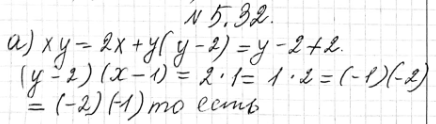 № 5.32.
а) xy = 2x + y(y-2) = y-2+2.
(y-2)(x-1) = 2·1 = 1·2 = (-1)(-2)
= (-2)(-1) то есть